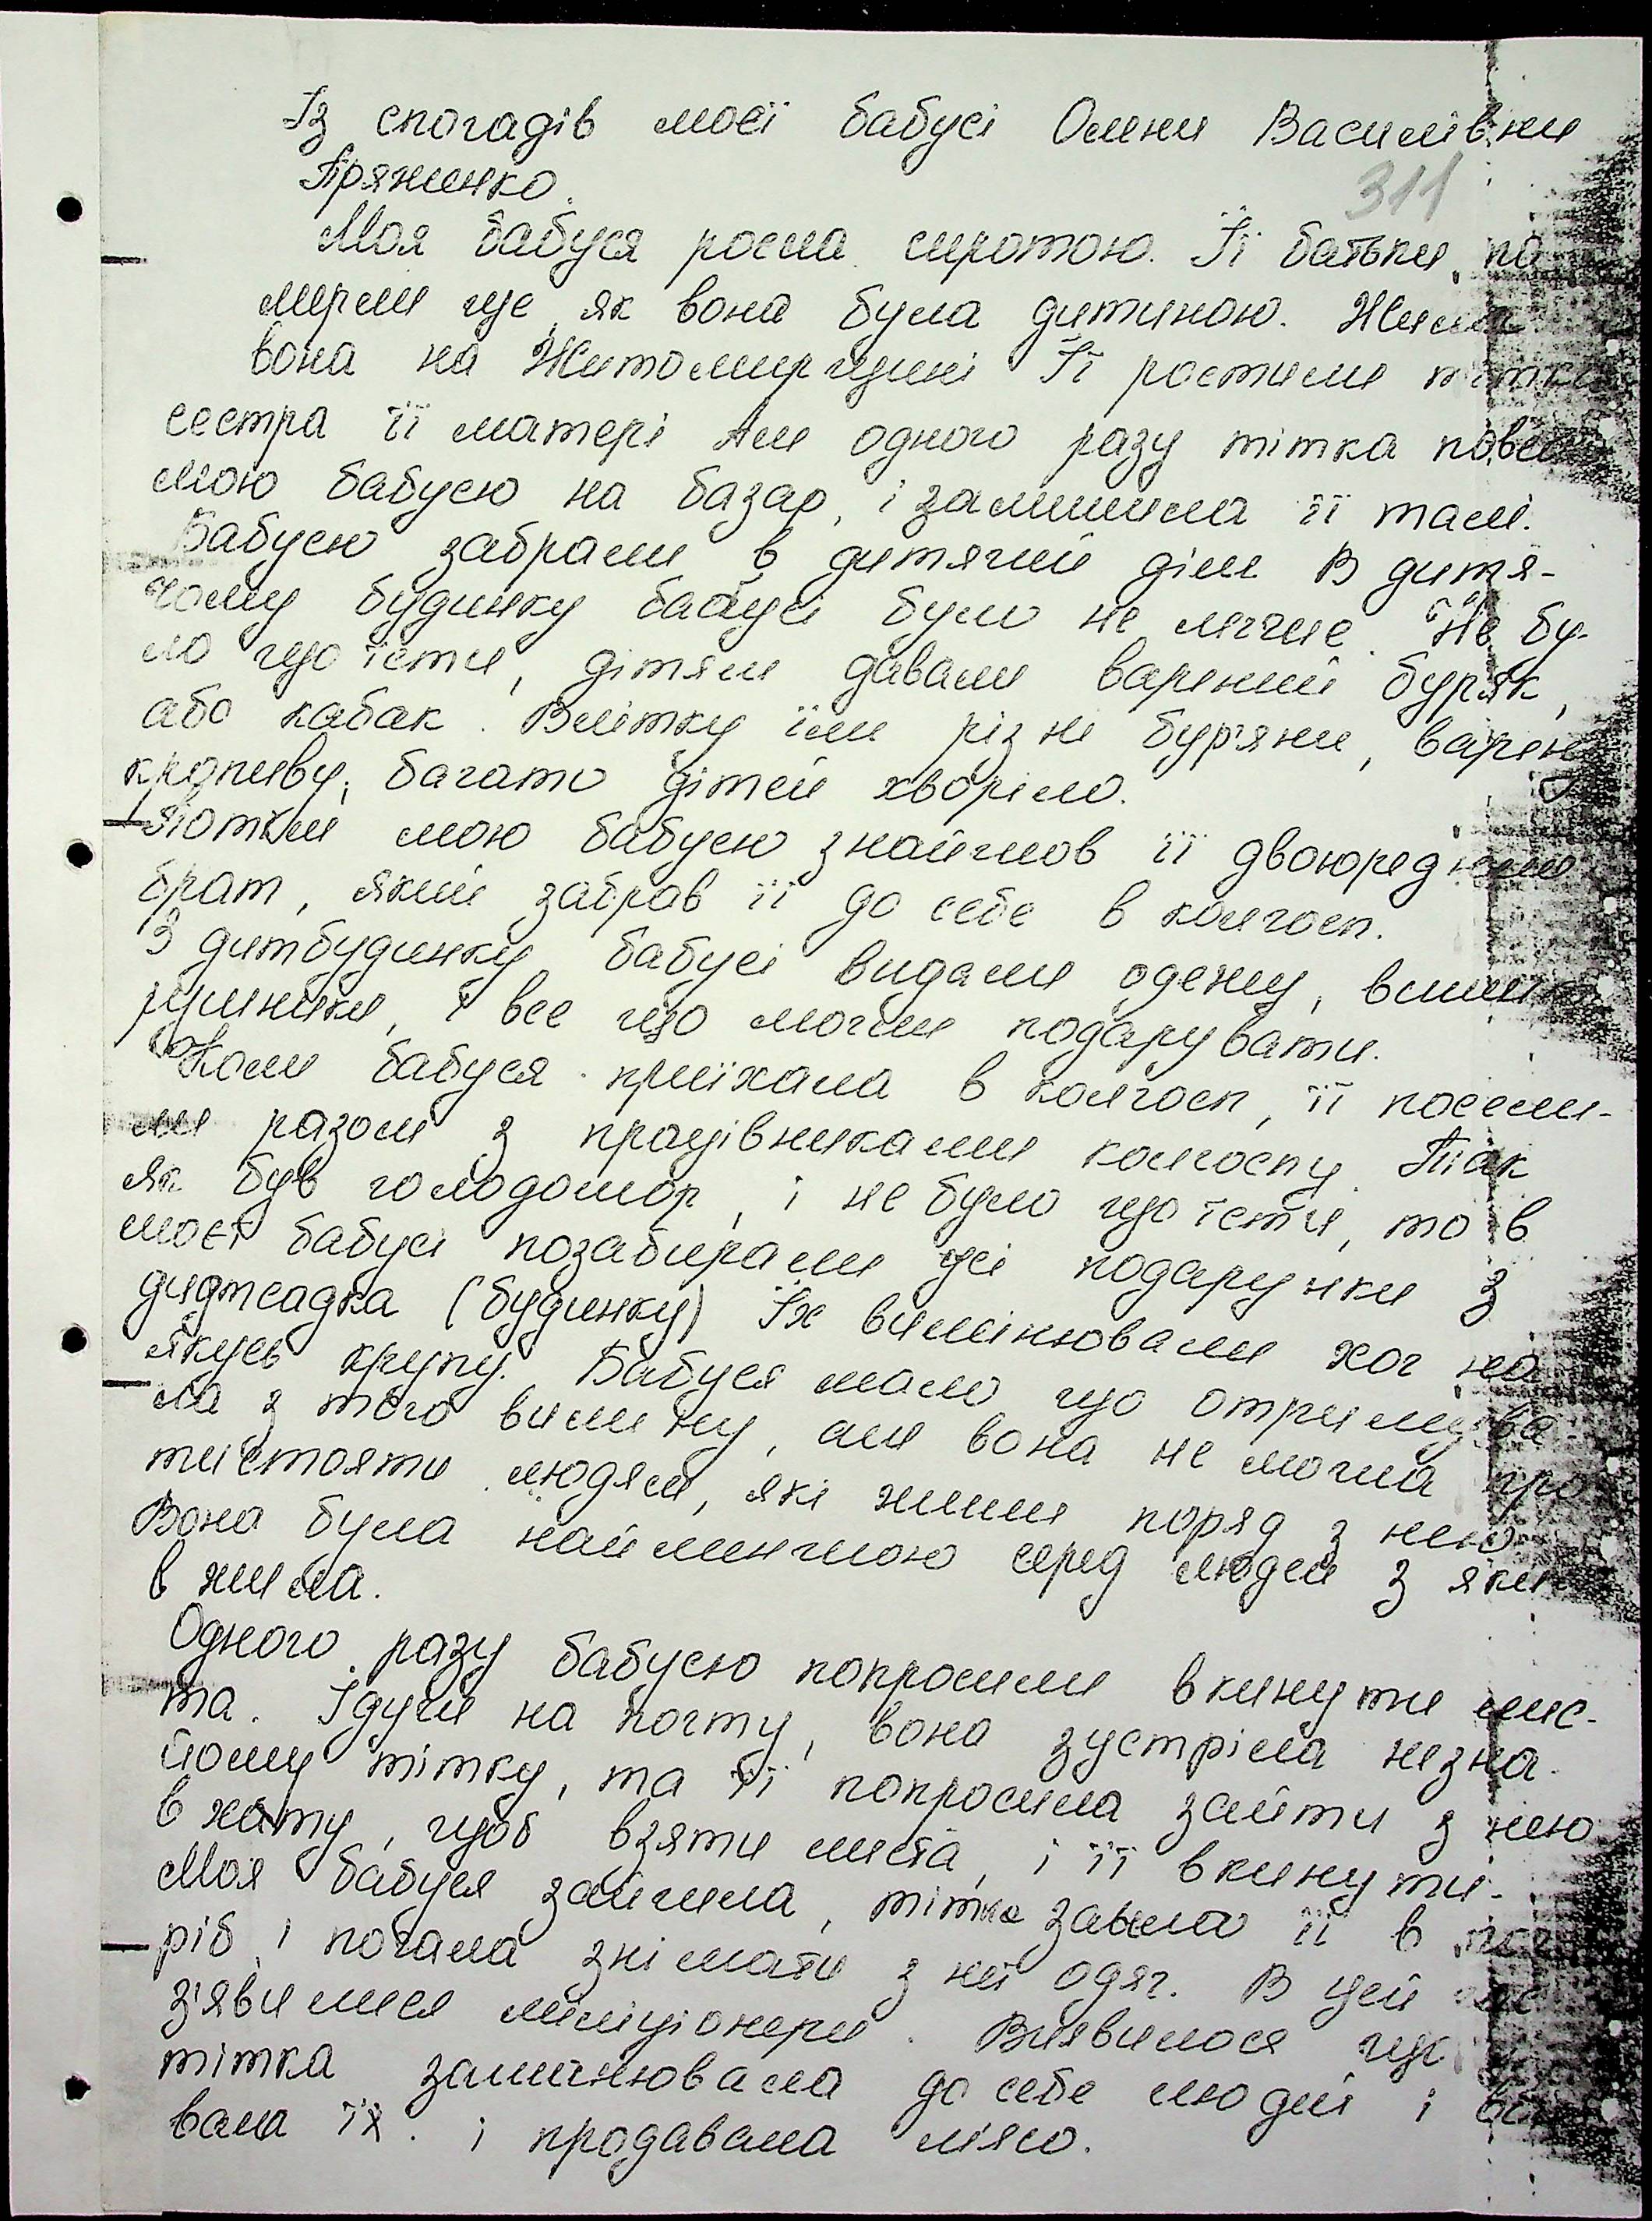 Із спогадів моєї бабусі Олени Василівни
Пряженко.
311
Моя бабуся росла сиротою. Її батьки по
мерли ще, як вона була дитиною. Жила
вона на Житомирщині Її ростили тітка
сестра її матері Але одного разу тітка повела
мою бабусю на базар, і залишила її там.
Бабусю забрали в дитячий дім В дитя-
чому будинку бабусі було не легше. Не бу-
ло що їсти, дітям давали варений буряк,
або кабак. Влітку їли різні бур'яни, варену
кропиву, багато дітей хворіло.
Потім мою бабусю знайшов її двоюрідний
брат, який забрав її до себе в колгосп.
З дитбудинку бабусі видали одежу,
рушники, і все що могли подарувати.
Коли бабуся приїхала в колгосп, її посели-
ли разом з працівниками колгоспу. Так
як був голодомор, і не було що їсти, то в
моєї бабусі позабирали усі подарунки з
дидтсадка (будинку) Їх вимінювали хоч на
якусь крупу. Бабуся мало що отримува
ла з того виміну, але вона не могла про
тистояти людям, які жили поряд з нею
Вона була найменшою серед людей з яким
в жила.
Одного разу бабусю попросили вкинути лис-
та. Ідучи на почту, вона зустріла незна-
йому тітку, та її попросила зайти з нею
в хату, щоб взяти листа, і її вкинути.
Моя бабуся зайшла, тітка завела її в пог
ріб, і почала знімати з неї одяг. В цей час
з'явилися міліціонери. Виявилося що
тітка заманювала до себе людей і
вала їх. і продавала м'ясо.